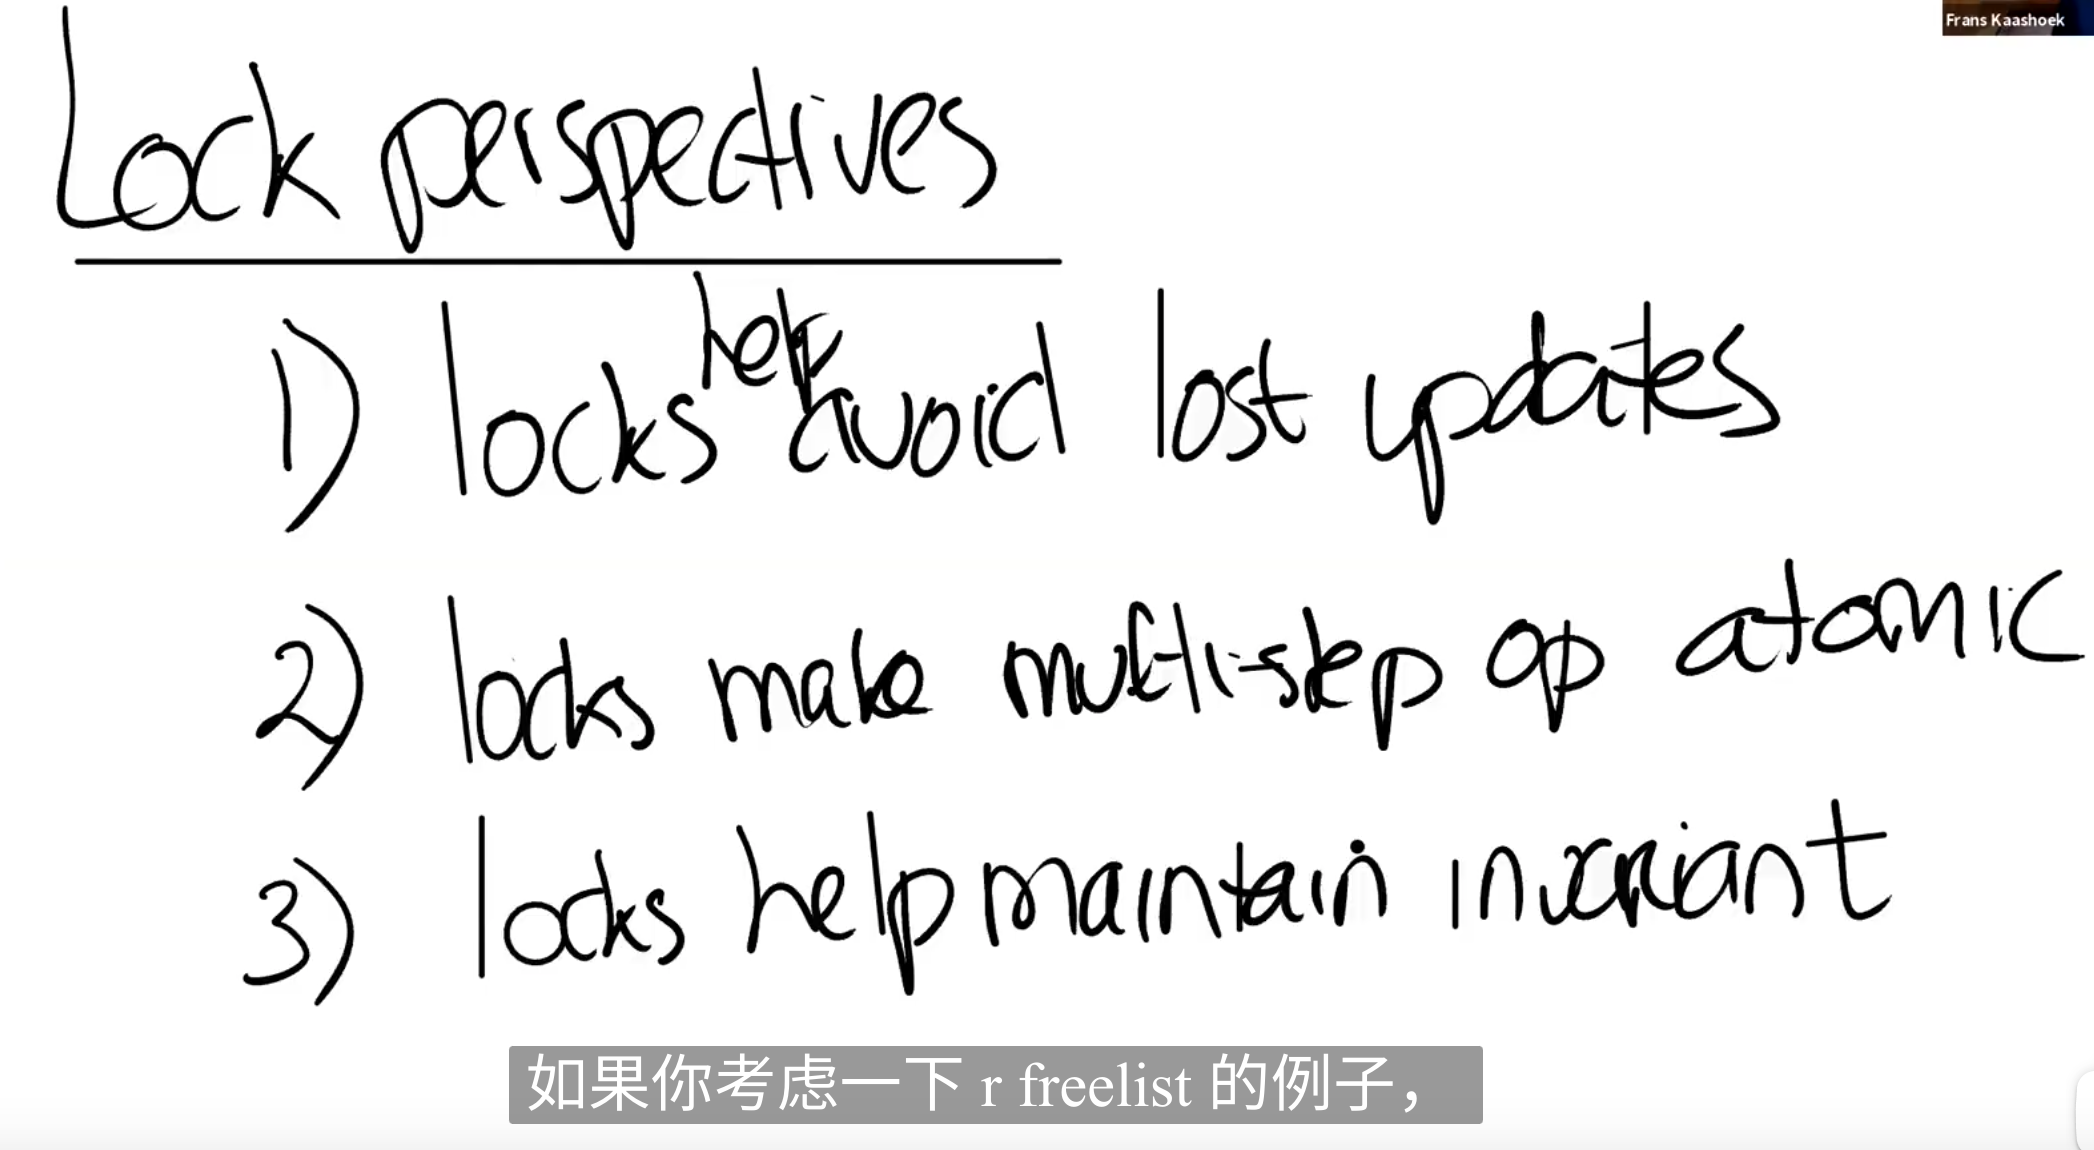 Frans Kaashoek
Lock perspectives
1) locks help avoid lost updates
2) locks make multi-step op atomic
3) locks help maintain invariant
如果你考虑一下 r freelist 的例子，